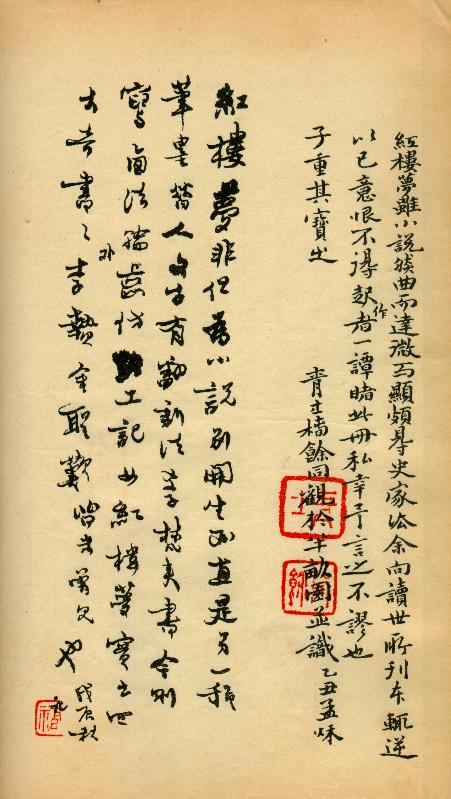 紅樓夢雖小說然曲而達微而顯頗得史家法余向讀世所刊本輒逆
以己意恨不得起作者一譚睹此冊私幸予言之不謬也
子重其寶之
青士椿餘同觀於半畝園並識乙丑孟秋
紅樓夢非但為小說別開生面直是另一種
筆墨昔人文字有翻新法學梵夾書今則
寫西法輪齒仿工記如紅樓夢實出四
大奇書之外李贄金聖歎皆未曾見也戊辰秋